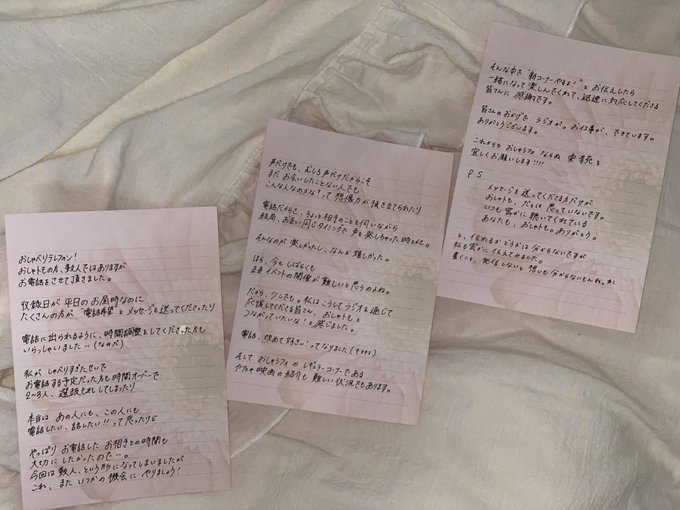 おしゃべりテレフォン！
おしゃトもの方、数人ではありますが
お電話をさせて頂きました。
収録日が平日のお昼時なのに
たくさんの方が "電話希望" とメッセージを送ってくださったり
電話に出られるように、時間調整をしてくださった方も
いらっしゃいました…
私がしゃべりすぎたせいで
お電話する予定だった方も時間オーバーで
2〜3人、選抜もれしてしまったり
本当は あの人にも、この人にも
電話したい、話したい!! って思ったけど
やっぱり お電話した お相手との時間も
大切にしたかったので…。
今回は数人、という形になってしまいましたが
これ、また いつかの機会に やりましょう！
声だけでも、むしろ声だけだからこそ
まだ お会いしたことない人でも
こんな人なのかな？って 想像力が掻き立てられたり
電話だからこそ、ちょっと相手のことを伺いながら
結局、お互い同じタイミングで声を発しちゃった時とか。
そんなのが楽しかったし、なんか嬉しかった。
ほら、今もしばらくも
正直 イベントの開催が難しいと思うのよね。
だから、少しでも。私はこうしてラジオを通じて
応援してくださる皆さん、おしゃトもと
つながっていたいな と感じました。
電話、改めて好き♡ってなりました
そして おしゃラフォ の レギュラーコーナーである
カフェや映画の紹介も 難しい状況でもあります。
そんな中で "新コーナーやるよ！" と お伝えしたら
一緒になって楽しんでくれて、迅速に対応してくださる
皆さんに 感謝です。
皆さんのおかげで ラジオが。お仕事が、できています。
ありがとうございます。
これからも おしゃラフォ ならぬ 東李苑を
宜しくお願いします!!!!
P.S
メッセージを送ってくださる方だけが
おしゃトも、だとは 思っていないです。
いつも密かに 聴いてくれている
あなたも、おしゃトも。ありがとう。
と、伝わるかどうかは 分からないですが
私も密かに 伝えてみました。
書くこと、発信しないと 想いも 分からないもんね。